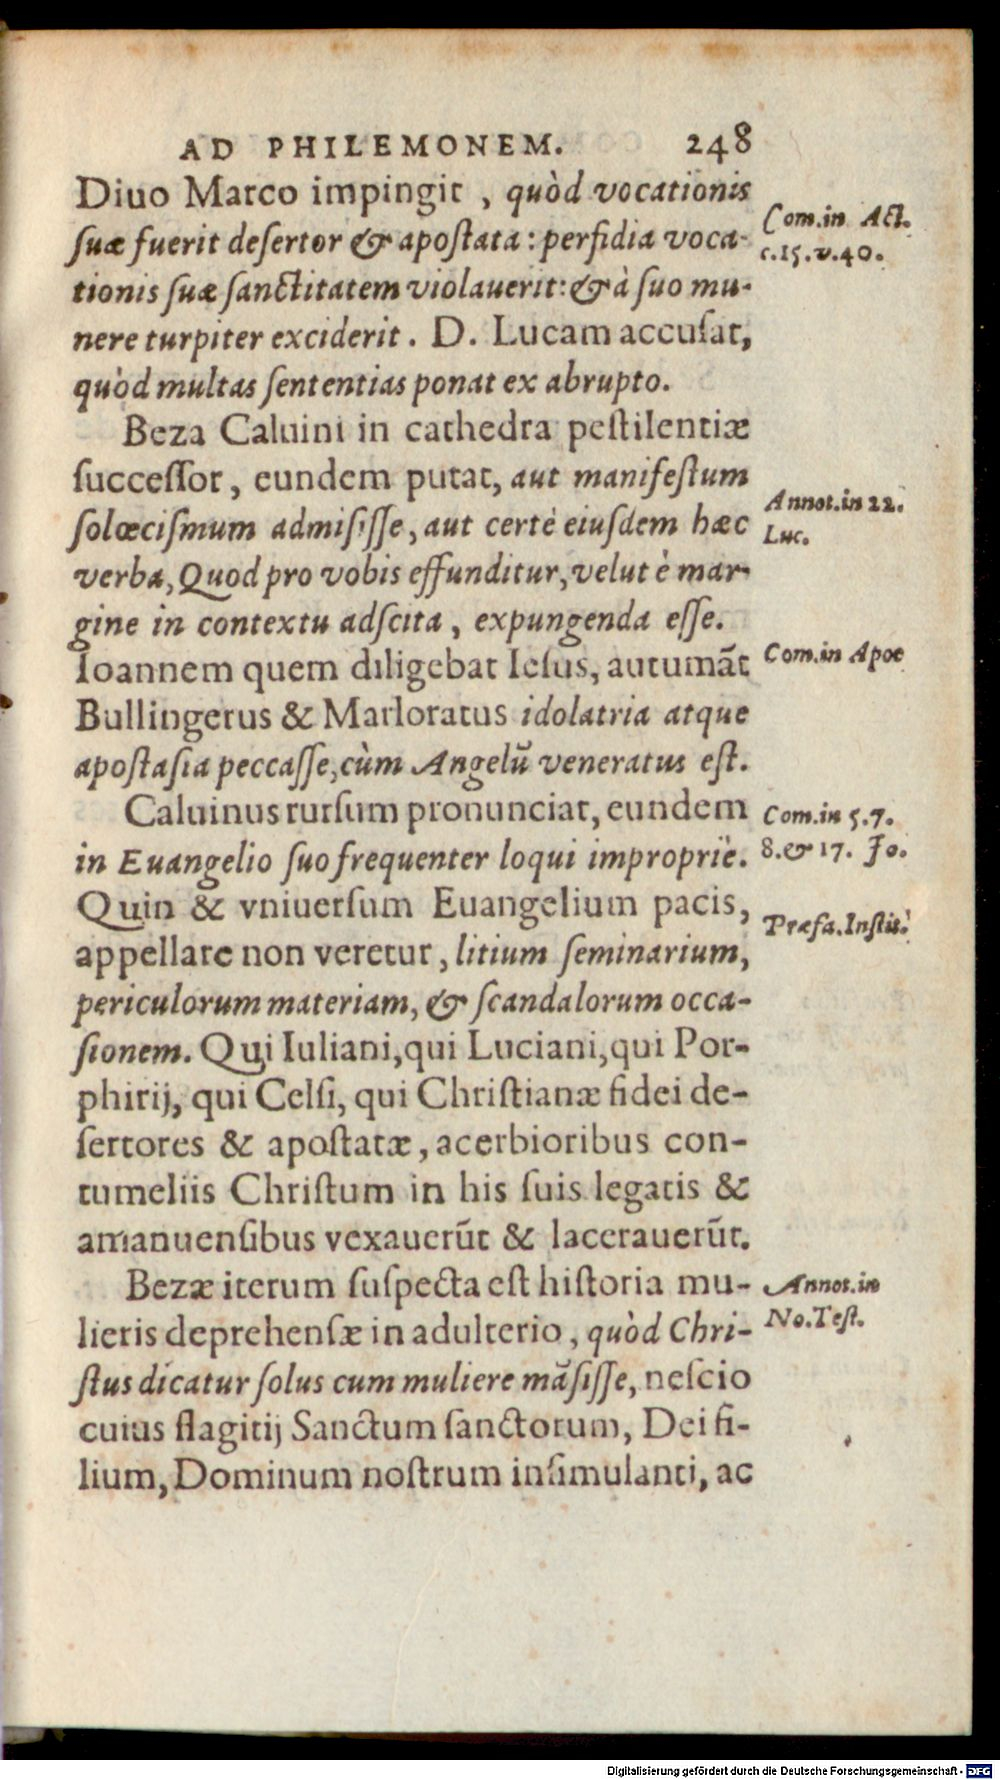 AD PHILEMONEM. 248
Diuo Marco impingit , quòd vocationis
suæ fuerit desertor & apostata : perfidia voca-
tionis suæ sanctitatem violauerit: & à suo mu-
nere turpiter exciderit . D. Lucam accusat,
quòd multas sententias ponat ex abrupto.
Com.in Act.
c.15.v.40.
Beza Caluini in cathedra pestilentiæ
successor, eundem putat, aut manifestum
solœcismum admisisse, aut certè eiusdem hæc
verba, Quod pro vobis effunditur, velut è mar-
gine in contextu adscita , expungenda esse.
Annot.in 22.
Luc.
Ioannem quem diligebat Iesus, autumãt
Bullingerus & Marloratus idolatria atque
apostasia peccasse, cùm Angelũ veneratus est.
Com.in Apoc
Caluinus rursum pronunciat, eundem
in Euangelio suo frequenter loqui impropriè.
Com.in 5.7.
8.& 17. Jo.
Quin & vniuersum Euangelium pacis,
appellare non veretur , litium seminarium,
periculorum materiam, & scandalorum occa-
sionem. Qui Iuliani, qui Luciani, qui Por-
phirij, qui Celsi, qui Christianæ fidei de-
sertores & apostatæ , acerbioribus con-
tumeliis Christum in his suis legatis &
amanuensibus vexauerũt & lacerauerũt.
Præfa.Instit.
Bezæ iterum suspecta est historia mu-
lieris deprehensæ in adulterio , quòd Chri-
stus dicatur solus cum muliere mãsisse, nescio
cuius flagitij Sanctum sanctorum, Dei fi-
lium, Dominum nostrum insimulanti, ac
Annot.in
No.Test.
Digitalisierung gefördert durch die Deutsche Forschungsgemeinschaft - DFG